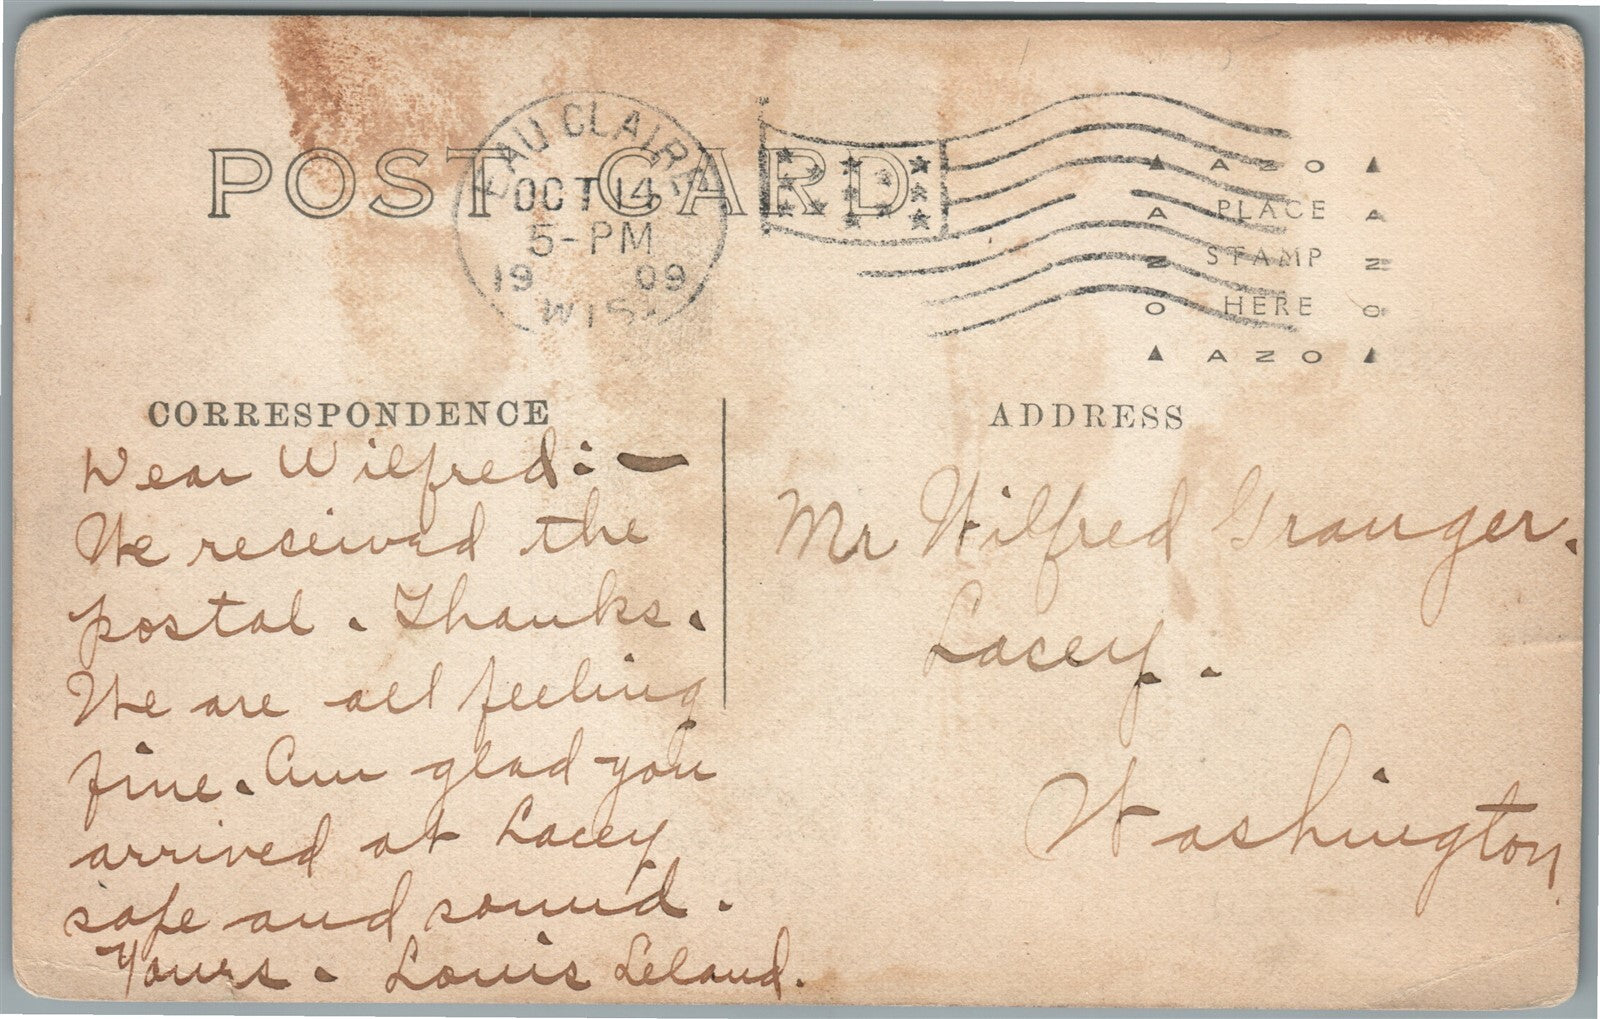 POST CARD
EAU CLAIRE
OCT 14
5-PM
19 09
WIS.
AZO
PLACE
STAMP
HERE
AZO
AZO
AZO
CORRESPONDENCE
Dear Wilfred:—
We received the
postal. Thanks.
We are all feeling
fine. Am glad you
arrived at Lacey
safe and sound.
Yours. Louis Leland.
ADDRESS
Mr Wilfred Granger.
Lacey.
Washington.